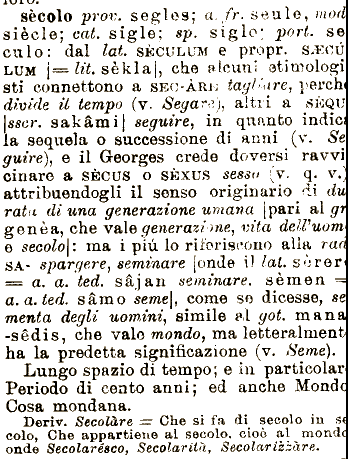 sècolo prov. segles; a. fr. seule, mod
siècle; cat. sigle; sp. siglo; port. se
culo: dal lat. SÈCULUM e propr. S.ECÙ
LUM [= lit. sèkla], che alcuni etimologi
sti connettono a SEC-ÀRE tagliare, perchè
divide il tempo (v. Segare), altri a SÈQU
[sscr. sakâmi] seguire, in quanto indica
la sequela o successione di anni (v. Se
guire), e il Georges crede doversi ravvi
cinare a SÈCUS o SÈXUS sesso (v. q. v.)
attribuendogli il senso originario di du
rata di una generazione umana [pari al gr
genèa, che vale generazione, vita dell'uomo
e secolo]: ma i più lo riferiscono alla rad
SA- spargere, seminare [onde il lat. sèrer
= a. a. ted. sâjan seminare. sèmen =
a. a. ted. sâmo seme], come se dicesse, se
menta degli uomini, simile al got. mana
-sêdis, che vale mondo, ma letteralment
ha la predetta significazione (v. Seme).
Lungo spazio di tempo; e in particolar
Periodo di cento anni; ed anche Mondo
Cosa mondana.
Deriv. Secolàre = Che si fa di secolo in se
colo, Che appartiene al secolo. cioè al mondo
onde Secolarésco, Secolarità, Secolarizzàre.